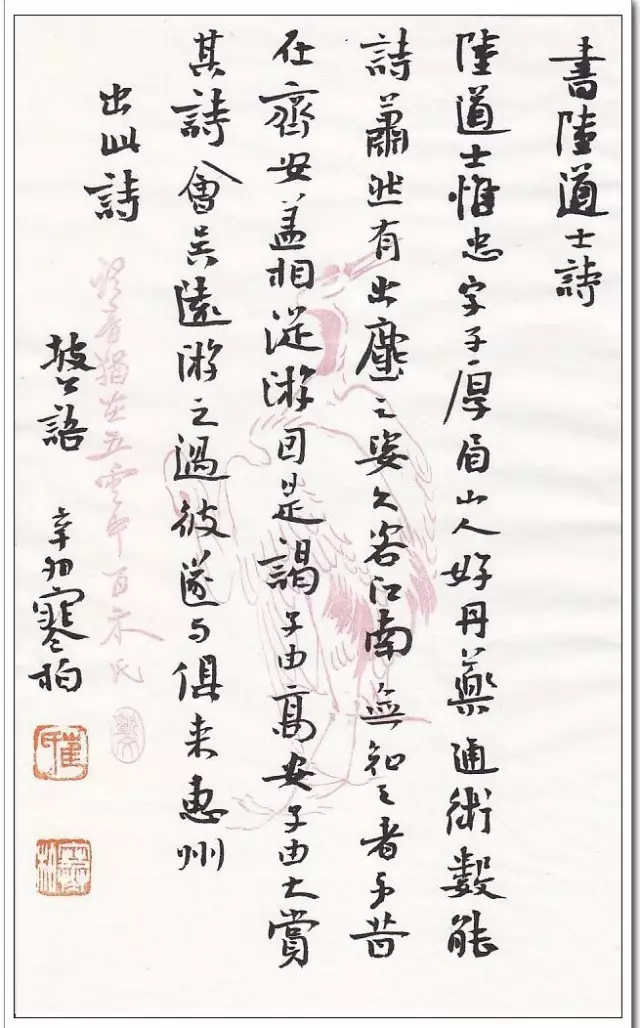 書陸道士詩
陸道士惟忠字子厚眉山人好丹藥通術數能
詩蕭然有出塵之姿久客江南無知之者予昔
在齊安盖相從游因是謁子由高安子由大賞
其詩會吳遠游之過彼遂与俱来惠州
出此詩
坡公語
辛卯寒柏
猶在五雲中百禾氏
崔